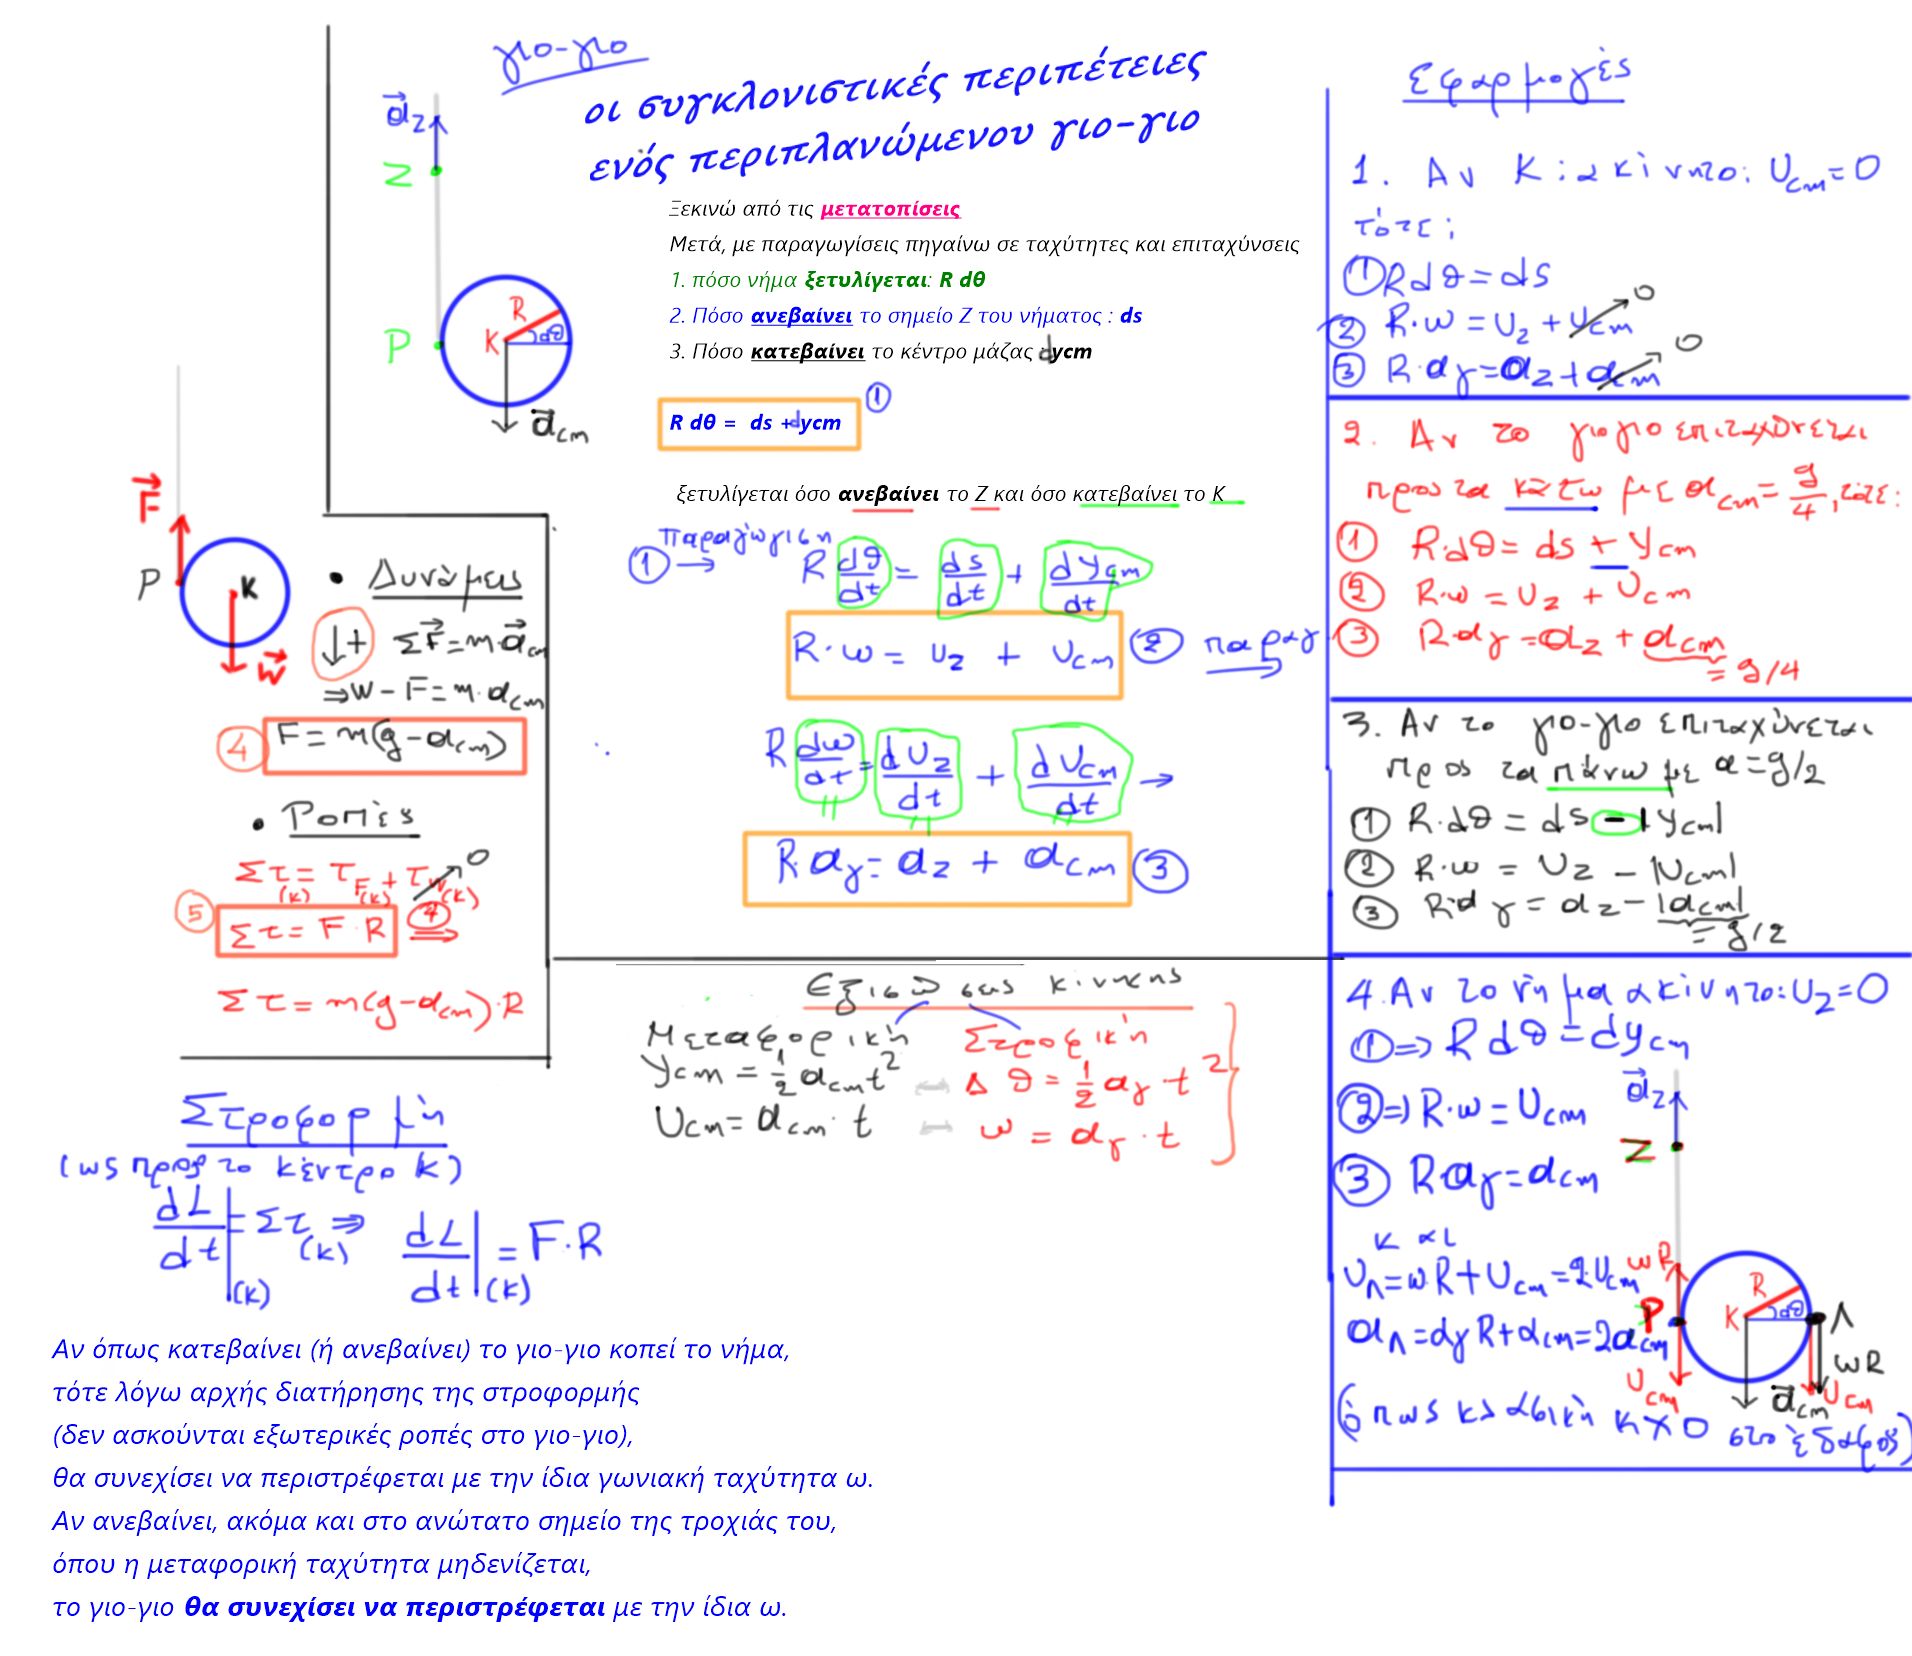 γιο-γιο
οι συγκλονιστικές περιπέτειες
ενός περιπλανώμενου γιο-γιο
Ξεκινώ από τις μετατοπίσεις
Μετά, με παραγωγίσεις πηγαίνω σε ταχύτητες και επιταχύνσεις
1. πόσο νήμα ξετυλίγεται: R dθ
2. Πόσο ανεβαίνει το σημείο Ζ του νήματος : ds
3. Πόσο κατεβαίνει το κέντρο μάζας : dycm
R dθ = ds + dycm ①
ξετυλίγεται όσο ανεβαίνει το Ζ και όσο κατεβαίνει το Κ
① → παραγώγιση
R dθ/dt = ds/dt + dycm/dt
R·ω = υz + υcm ② παραγ
R dω/dt = dυz/dt + dυcm/dt →
R·αγ = αz + αcm ③
αz
Z
P
R
K
dθ
αcm
F
P
K
W
• Δυνάμεις
↓+ ΣF = m·αcm
⇒ W - F = m·αcm
④ F = m(g - αcm)
• Ροπές
Στ(κ) = τF(κ) + τW(κ) 0
⑤ Στ = F·R ④ ⇒
Στ = m(g - αcm)·R
Εξισώσεις κίνησης
Μεταφορική Στροφική
ycm = 1/2 αcm t² ↔ Δθ = 1/2 αγ·t²
υcm = αcm·t ↔ ω = αγ·t
Στροφορμή
(ως προς το κέντρο κ)
dL/dt|(κ) = Στ(κ) ⇒ dL/dt|(κ) = F·R
Αν όπως κατεβαίνει (ή ανεβαίνει) το γιο-γιο κοπεί το νήμα,
τότε λόγω αρχής διατήρησης της στροφορμής
(δεν ασκούνται εξωτερικές ροπές στο γιο-γιο),
θα συνεχίσει να περιστρέφεται με την ίδια γωνιακή ταχύτητα ω.
Αν ανεβαίνει, ακόμα και στο ανώτατο σημείο της τροχιάς του,
όπου η μεταφορική ταχύτητα μηδενίζεται,
το γιο-γιο θα συνεχίσει να περιστρέφεται με την ίδια ω.
Εφαρμογές
1. Αν Κ: ακίνητο: υcm = 0
τότε:
① R dθ = ds
② R·ω = υz + υcm 0
③ R·αγ = αz + αcm 0
2. Αν το γιογιο επιταχύνεται
προς τα κάτω με αcm = g/4, τότε:
① R·dθ = ds + ycm
② R·ω = υz + υcm
③ R·αγ = αz + αcm
= g/4
3. Αν το γιο-γιο επιταχύνεται
προς τα πάνω με α = g/2
① R·dθ = ds - |ycm|
② R·ω = υz - |υcm|
③ R·αγ = αz - |αcm|
= g/2
4. Αν το νήμα ακίνητο: υz = 0
① ⇒ R dθ = dycm
② ⇒ R·ω = υcm
③ R·αγ = αcm
κ αι
υΛ = ωR + υcm = 2υcm
αΛ = αγR + αcm = 2αcm
(όπως κλασική ΚΧΟ στο έδαφος)
αz
Z
ωR
P
υcm
R
K
dθ
Λ
ωR
αcm
υcm